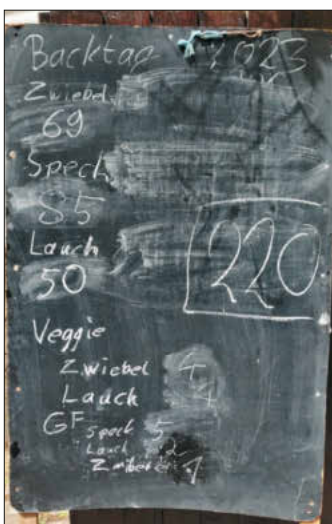 Backtag 2023
Zwiebel
69
Speck
85
Lauch
50
220
Veggie
Zwiebel 4
Lauch 4
GF Speck 5
Lauch 2
Zwiebel